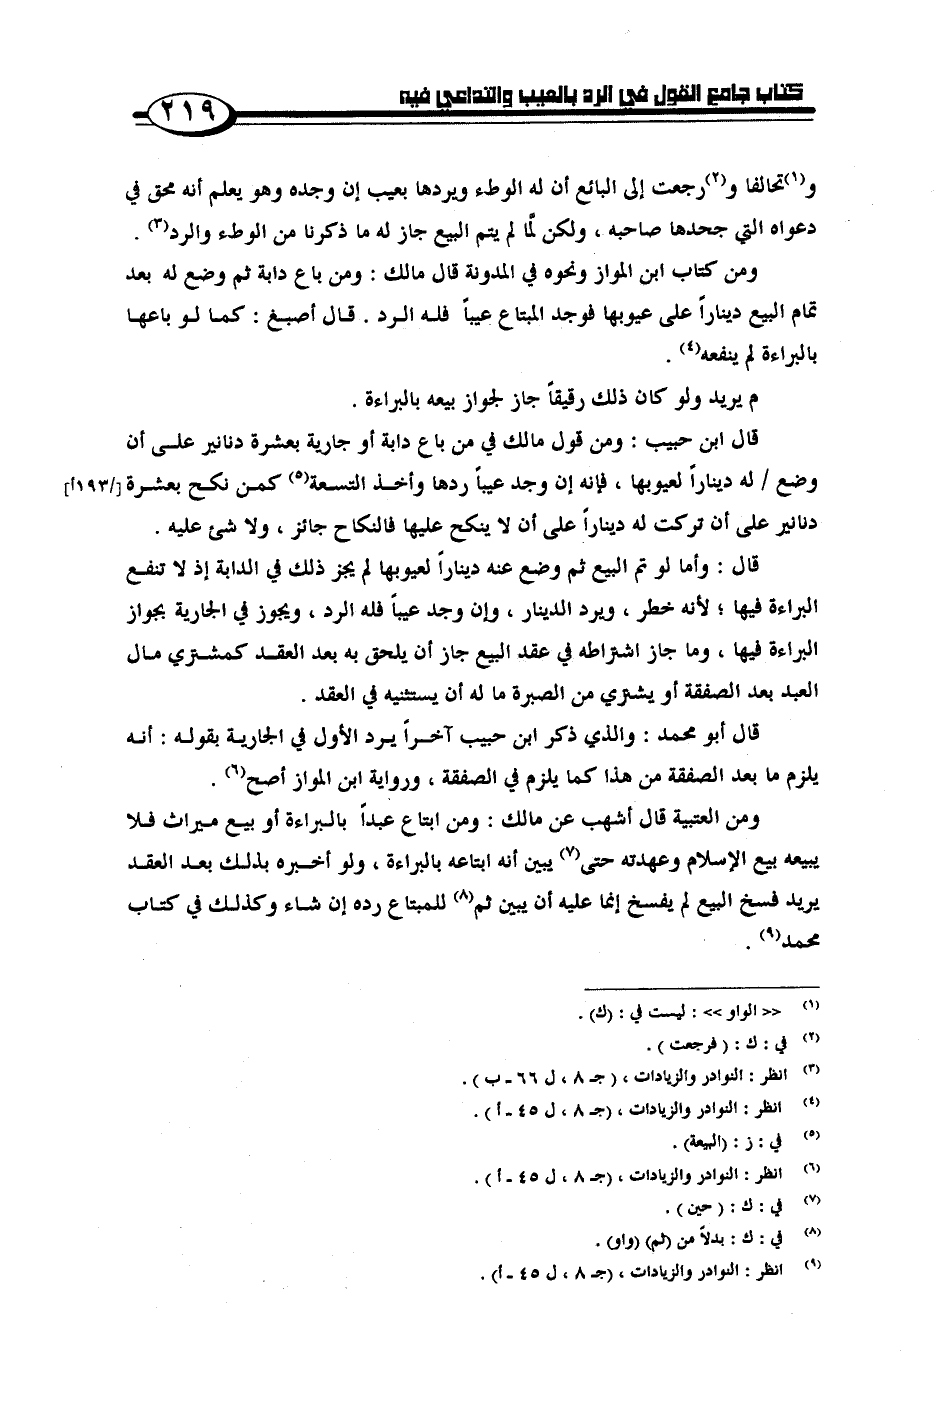 كتاب جامع القول في الرد بالعيب والتداعي فيه
٢١٩
و(١)تحالفا و(٢)رجعت إلى البائع أن له الوطء ويردها بعيب إن وجده وهو يعلم أنه محق في
دعواه التي جحدها صاحبه ، ولكن لمّا لم يتم البيع جاز له ما ذكرنا من الوطء والرد(٣) .
ومن كتاب ابن المواز ونحوه في المدونة قال مالك : ومن باع دابة ثم وضع له بعد
تمام البيع ديناراً على عيوبها فوجد المبتاع عيباً فله الرد . قال أصبغ : كما لو باعها
بالبراءة لم ينفعه(٤) .
م يريد ولو كان ذلك رقيقاً جاز لجواز بيعه بالبراءة .
قال ابن حبيب : ومن قول مالك في من باع دابة أو جارية بعشرة دنانير على أن
وضع / له ديناراً لعيوبها ، فإنه إن وجد عيباً ردها وأخذ التسعة(٥) كمن نكح بعشرة [/١٩٣أ]
دنانير على أن تركت له ديناراً على أن لا ينكح عليها فالنكاح جائز ، ولا شئ عليه .
قال : وأما لو تم البيع ثم وضع عنه ديناراً لعيوبها لم يجز ذلك في الدابة إذ لا تنفع
البراءة فيها ؛ لأنه خطر ، ويرد الدينار ، وإن وجد عيباً فله الرد ، ويجوز في الجارية بجواز
البراءة فيها ، وما جاز اشتراطه في عقد البيع جاز أن يلحق به بعد العقد كمشتري مال
العبد بعد الصفقة أو يشتري من الصبرة ما له أن يستثنيه في العقد .
قال أبو محمد : والذي ذكر ابن حبيب آخراً يرد الأول في الجارية بقوله : أنه
يلزم ما بعد الصفقة من هذا كما يلزم في الصفقة ، ورواية ابن المواز أصح(٦) .
ومن العتبية قال أشهب عن مالك : ومن ابتاع عبداً بالبراءة أو بيع ميراث فلا
يبيعه بيع الإسلام وعهدته حتى(٧) يبين أنه ابتاعه بالبراءة ، ولو أخبره بذلك بعد العقد
يريد فسخ البيع لم يفسخ إنما عليه أن يبين ثم(٨) للمبتاع رده إن شاء وكذلك في كتاب
محمد(٩) .
(١) << الواو >> : ليست في : (ك) .
(٢) في : ك : ( فرجعت ) .
(٣) انظر : النوادر والزيادات ، ( جـ ٨ ، ل ٦٦ ـ ب ) .
(٤) انظر : النوادر والزيادات ، (جـ ٨ ، ل ٤٥ ـ أ ) .
(٥) في : ز : (البيعة) .
(٦) انظر : النوادر والزيادات ، (جـ ٨ ، ل ٤٥ ـ أ ) .
(٧) في : ك : ( حين ) .
(٨) في : ك : بدلاً من (ثم) (واو) .
(٩) انظر : النوادر والزيادات ، (جـ ٨ ، ل ٤٥ ـ أ) .